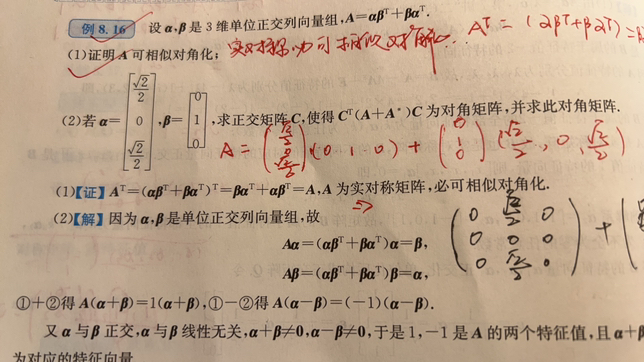 例 8.16 设 α,β 是 3 维单位正交列向量组,A=αβᵀ+βαᵀ.
(1)证明 A 可相似对角化; Aᵀ=(αβᵀ+βαᵀ)=
(2)若 α=[√2/2 0 √2/2],β=[0 1 0],求正交矩阵 C,使得 Cᵀ(A+A*)C 为对角矩阵,并求此对角矩阵.
A=(√2/2 0 √2/2)(0 1 0)+(0 1 0)(√2/2,0,√2/2)
(1)【证】 Aᵀ=(αβᵀ+βαᵀ)ᵀ=βαᵀ+αβᵀ=A,A 为实对称矩阵,必可相似对角化.
(2)【解】 因为 α,β 是单位正交列向量组,故
Aα=(αβᵀ+βαᵀ)α=β,
Aβ=(αβᵀ+βαᵀ)β=α,
(0 √2/2 0
0 0 0
0 √2/2 0)+
①+②得 A(α+β)=1(α+β),①-②得 A(α-β)=(-1)(α-β).
又 α 与 β 正交,α 与 β 线性无关,α+β≠0,α-β≠0,于是 1,-1 是 A 的两个特征值,且 α+β
为对应的特征向量